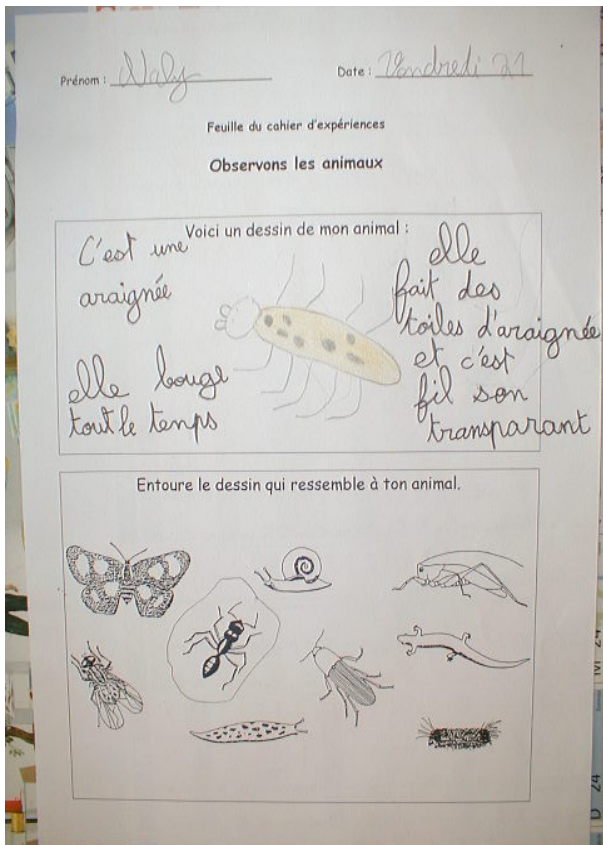 Prénom : Naly
Date : Vendredi 21
Feuille du cahier d'expériences
Observons les animaux
Voici un dessin de mon animal :
C'est une
araignée
elle bouge
tout le temps
elle
fait des
toiles d'araignée
et c'est
fil son
transparant
Entoure le dessin qui ressemble à ton animal.
M 24
D 24